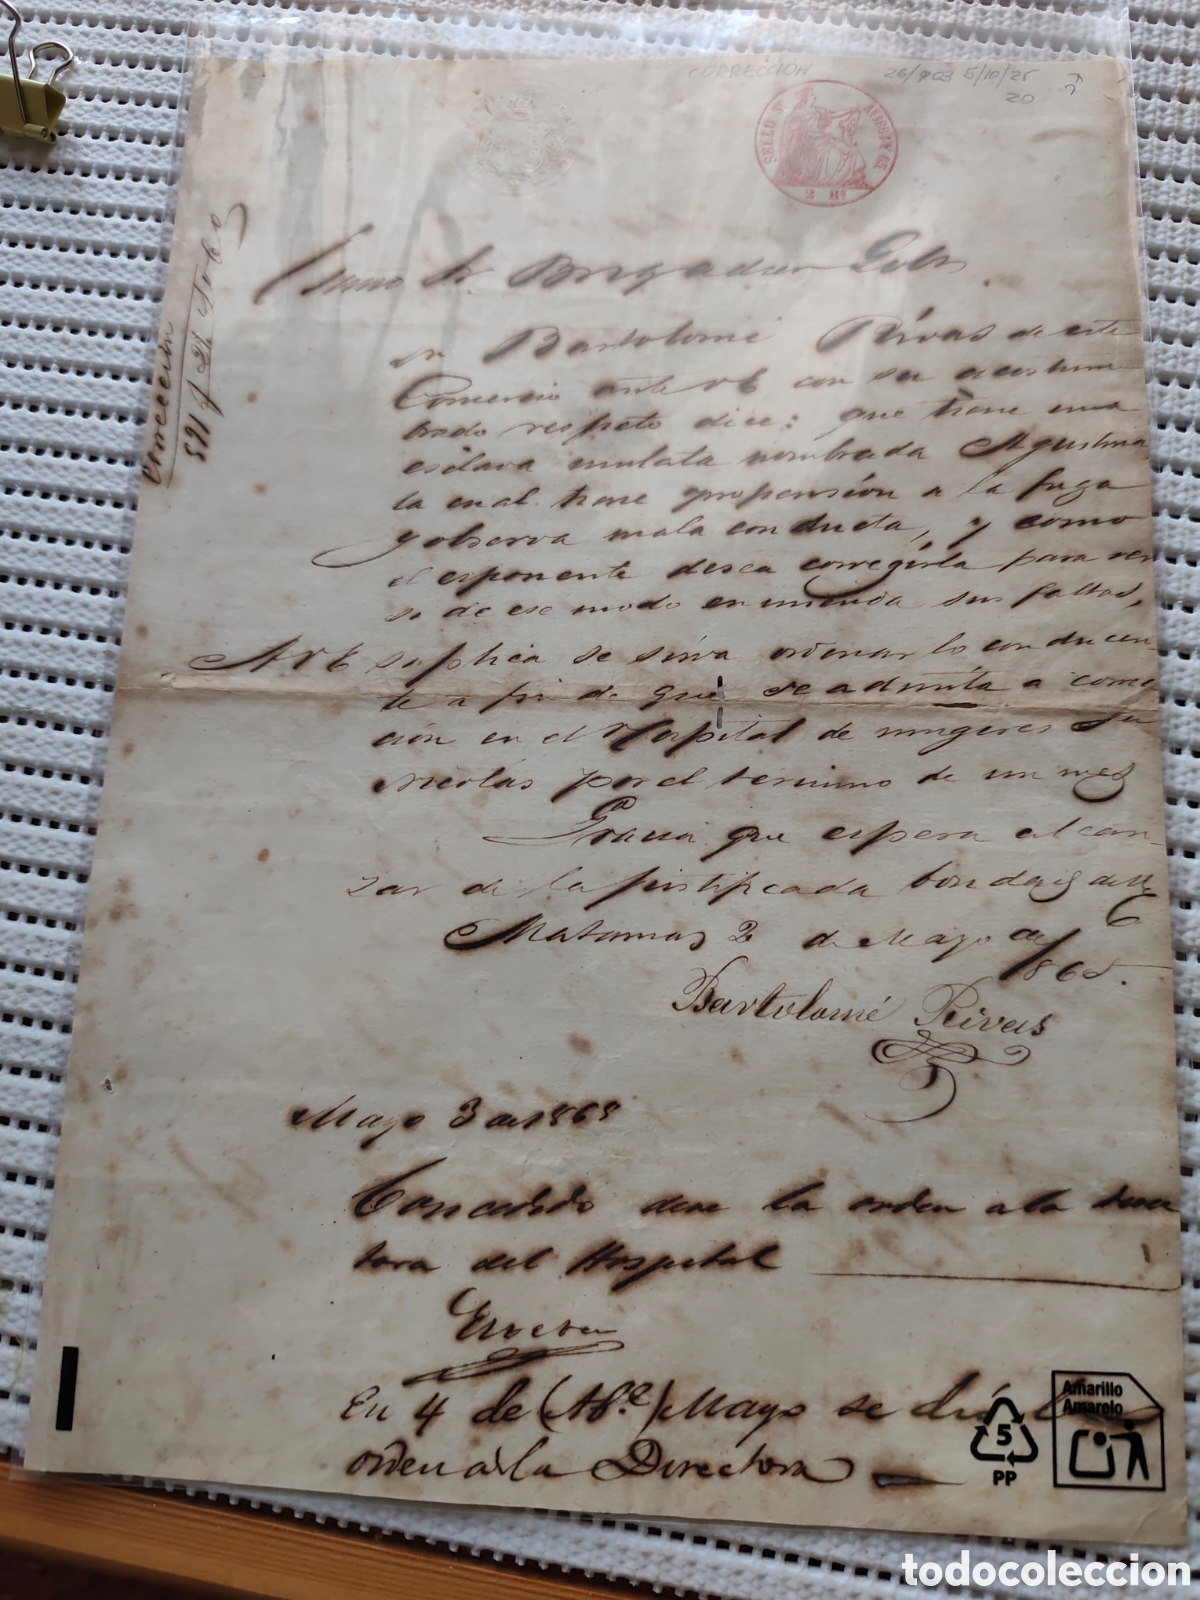 CORRECCION 26/903 5/10/25
20
SELLO 3º
AÑOS 1868 Y 69
2 Rs
Correccion
591 f 26 Toº 60
Exmo Sr Brigadier Gobr
Dn Bartolomé Rivas de este
Comercio ante VE con su acostum
brado respeto dice: que tiene una
esclava mulata nombrada Agustina
la cual tiene propension a la fuga
y observa mala conducta, y como
el esponente desea corregirla para ver
si de ese modo enmienda sus faltas,
A VE suplica se sirva ordenar lo conducen
te a fin de que se admita a correc
ción en el Hospital de mugeres Sn
Nicolás por el termino de un mes
Gracia que espera alcan
zar de la justificada bondad de VE
Matanzas 2 de Mayo de 1868.
Bartolomé Rivas
Mayo 3 de 1868
Concedido dese la orden a la direc
tora del Hospital
En 4 de (Abe) Mayo se dió la
orden a la Directora
Amarillo
Amarelo
5
PP
todocoleccion